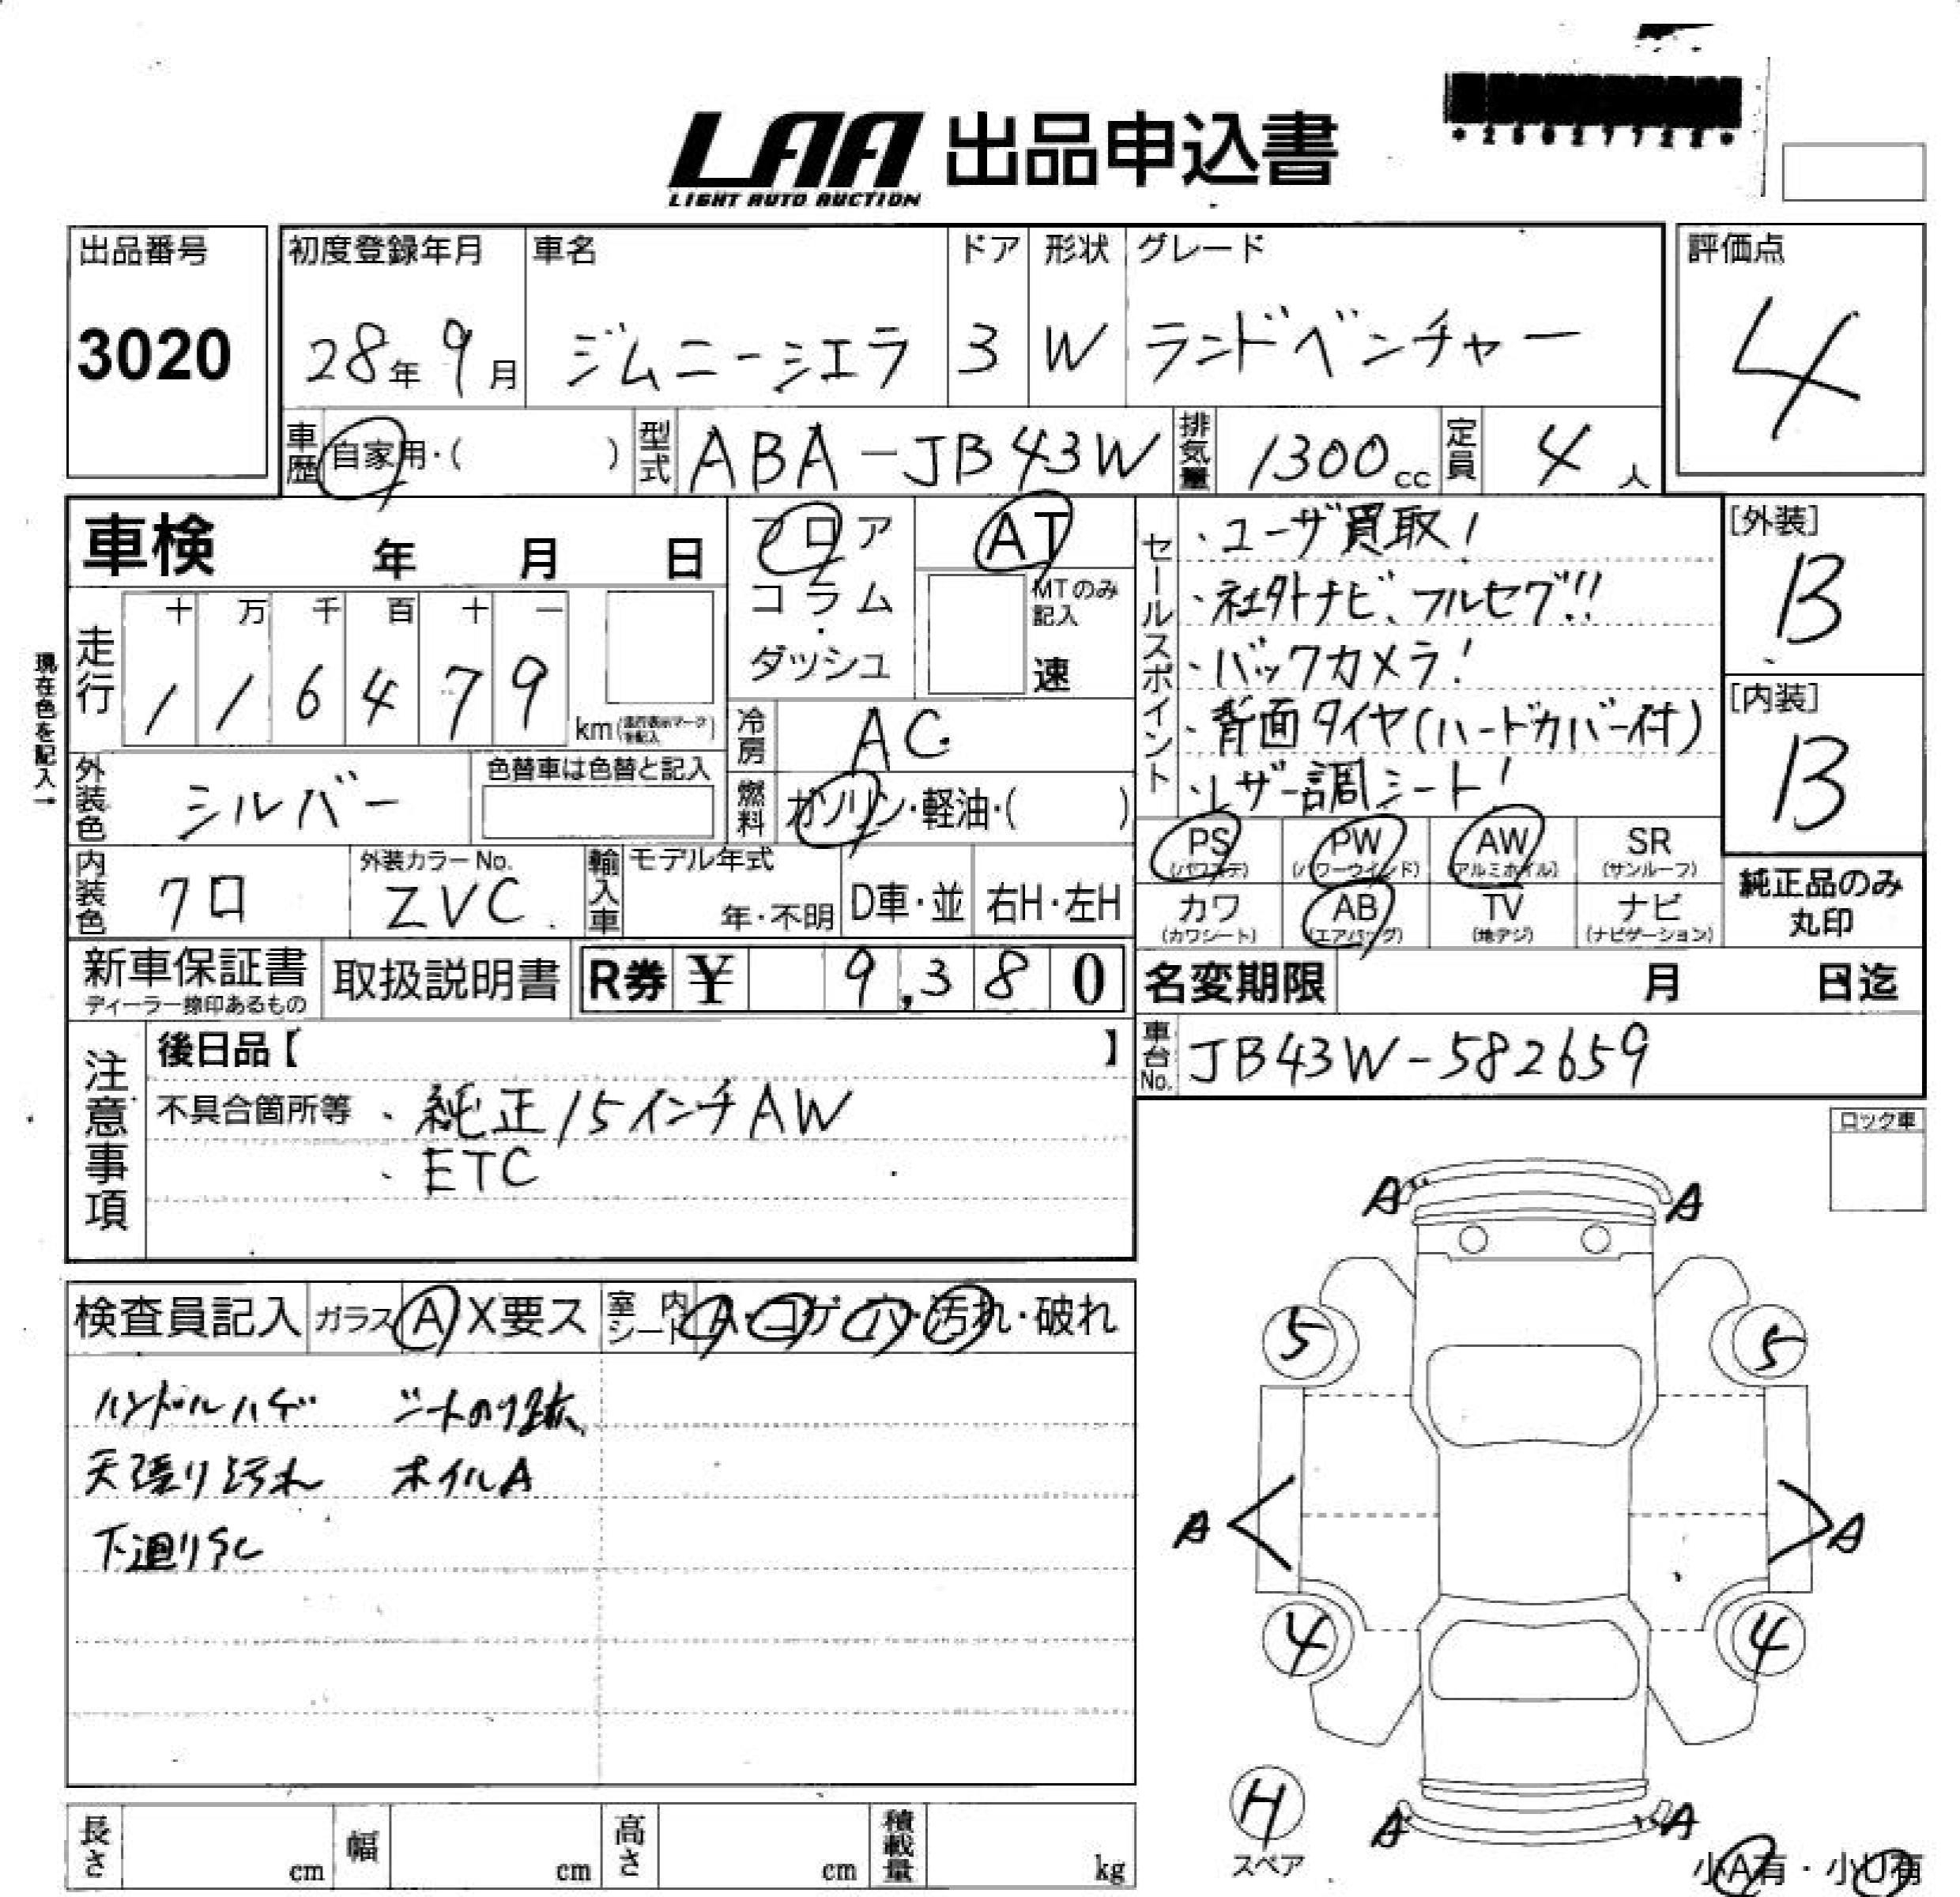 LAA 出品申込書
LIGHT AUTO AUCTION
出品番号
3020
初度登録年月 車名 ドア 形状 グレード
28年 9月 ジムニーシエラ 3 W ランドベンチャー
評価点
4
車歴 自家用・( ) 型式 ABA-JB43W 排気量 1300cc 定員 4人
車検 年 月 日
フロア
コラム
・
ダッシュ
AT
MTのみ
記入
速
走行
十 万 千 百 十 一
1 1 6 4 7 9 km
現在色を記入→
冷房 AC
燃料 ガソリン・軽油・( )
外装色 シルバー
色替車は色替と記入
内装色 クロ
外装カラーNo.
ZVC
輸入車 モデル年式
年・不明 D車・並 右H・左H
セールスポイント
・ユーザ買取!
・社外ナビ、フルセグ!!
・バックカメラ!
・背面タイヤ(ハードカバー付)
・レザー調シート!
[外装]
B
[内装]
B
PS PW AW SR
(パワステ) (パワーウインド) (アルミホイル) (サンルーフ)
カワ AB TV ナビ
(カワシート) (エアバッグ) (地デジ) (ナビゲーション)
純正品のみ
丸印
新車保証書
ディーラー捺印あるもの
取扱説明書
R券 ¥ 9,380
名変期限 月 日迄
車台No. JB43W-582659
注意事項
後日品【 】
不具合箇所等 、純正15インチAW
、ETC
ロック車
検査員記入 ガラス A X要ス 室内シート A・コゲ・穴・汚れ・破れ
ハンドルハゲ シートのり跡
天張り汚れ ホイルA
下廻りサビ
A A
5 5
A A
4 4
H
スペア
A A
小A有・小U有
長さ cm 幅 cm 高さ cm 積載量 kg